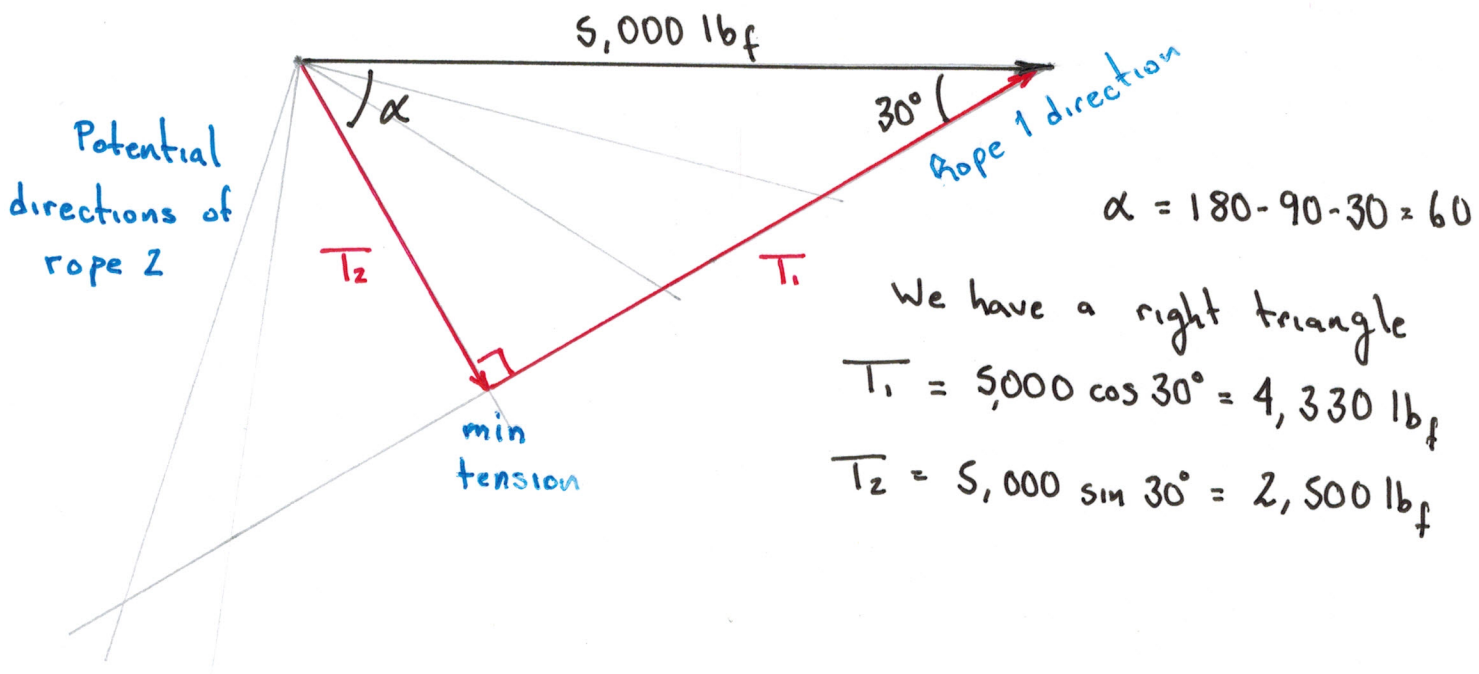 5,000 lbf
α
30°
Rope 1 direction
Potential
directions of
rope 2
T2
T1
min
tension
α = 180-90-30 = 60
We have a right triangle
T1 = 5,000 cos 30° = 4,330 lbf
T2 = 5,000 sin 30° = 2,500 lbf